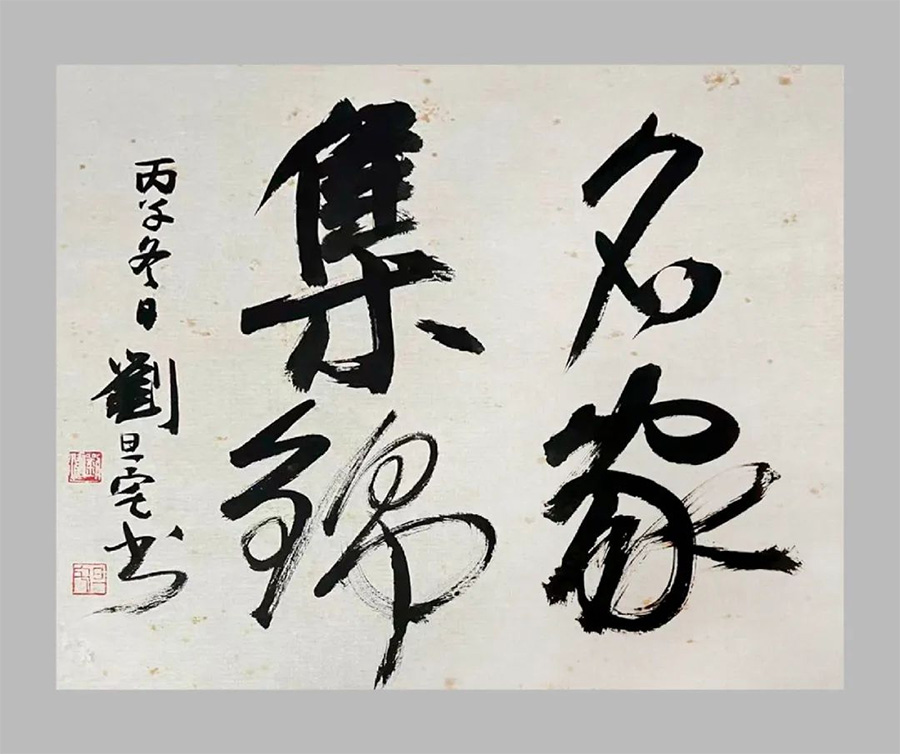 名家
集錦
丙子冬日劉旦宅书